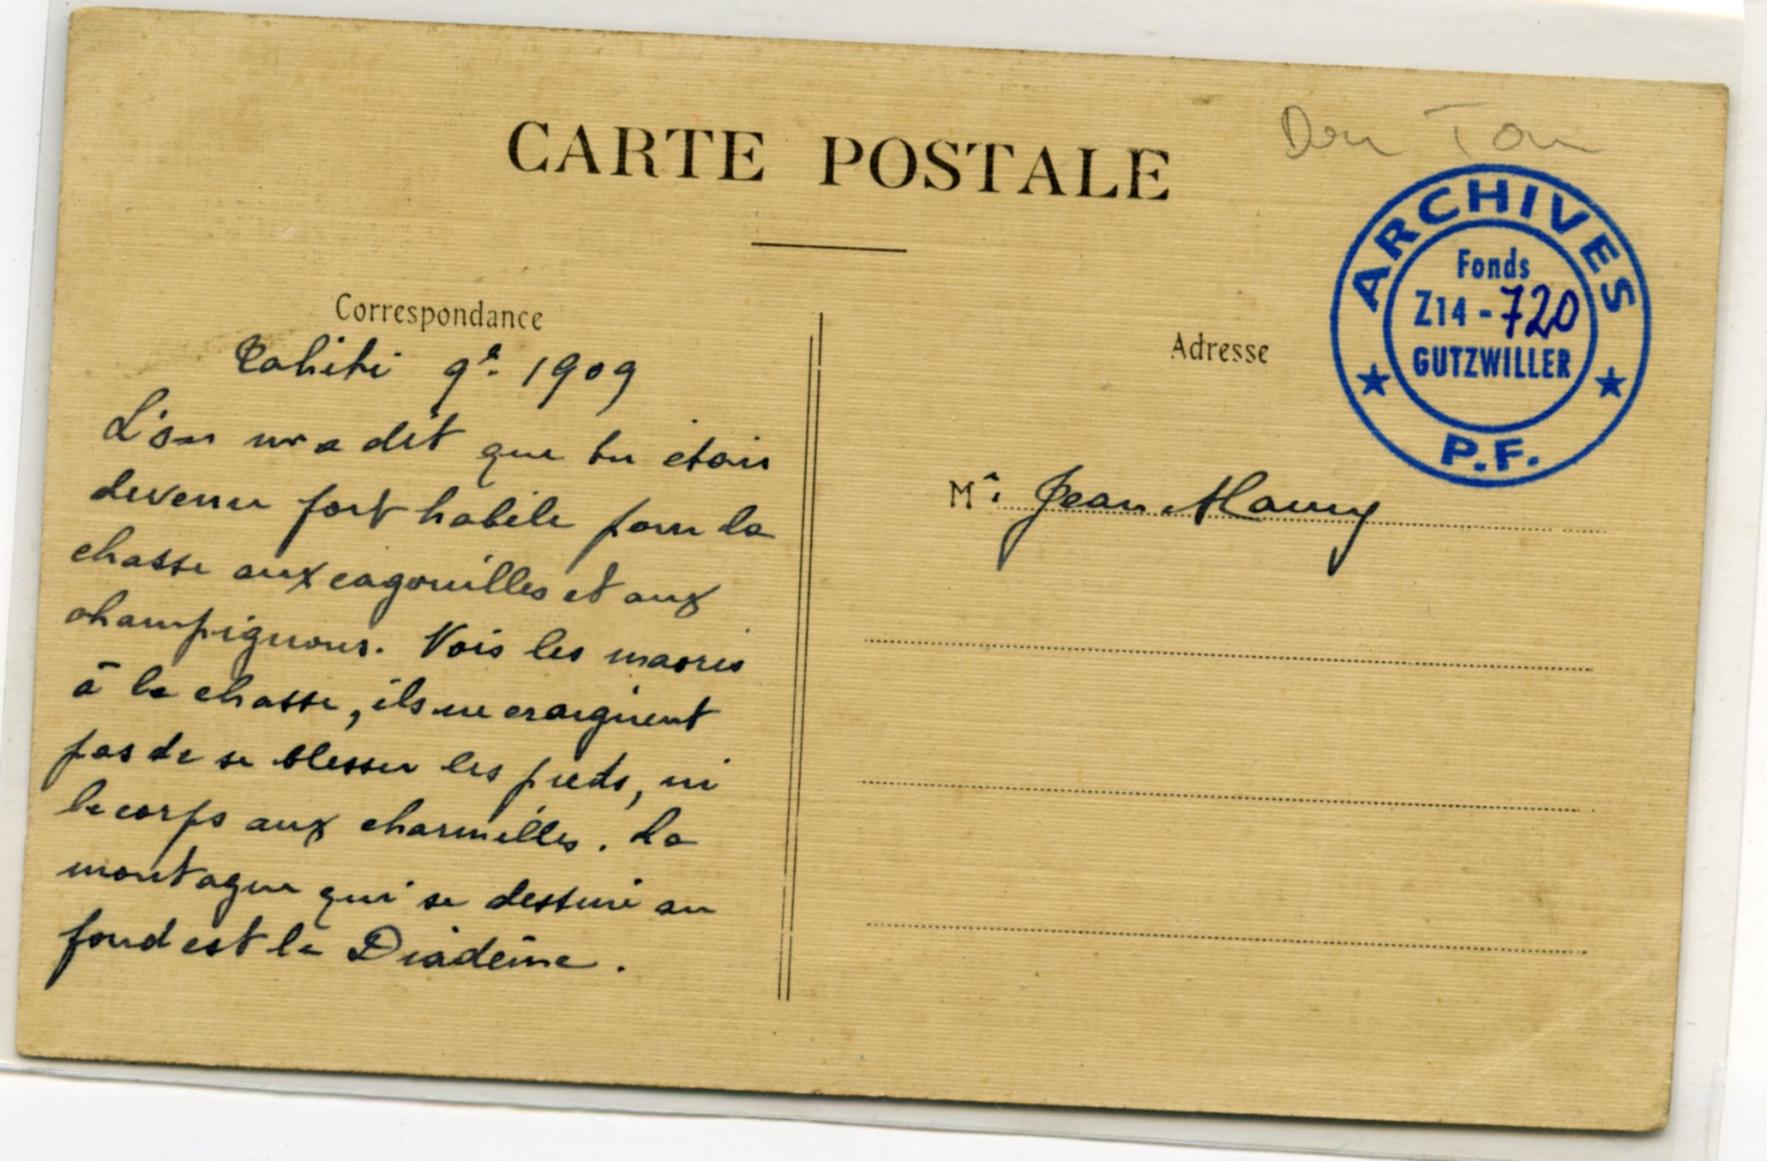 CARTE POSTALE
Don Tou
ARCHIVES
Fonds
Z14-720
GUTZWILLER
P.F.
Correspondance
Tahiti 9e. 1909
L'on m'a dit que tu étais
devenu fort habile pour la
chasse aux cagouilles et aux
champignons. Vois les maoris
à la chasse, ils ne craignent
pas de se blesser les pieds, ni
le corps aux charmilles. La
montagne qui se dessine au
fond est le Diadème.
Adresse
Mr. Jean